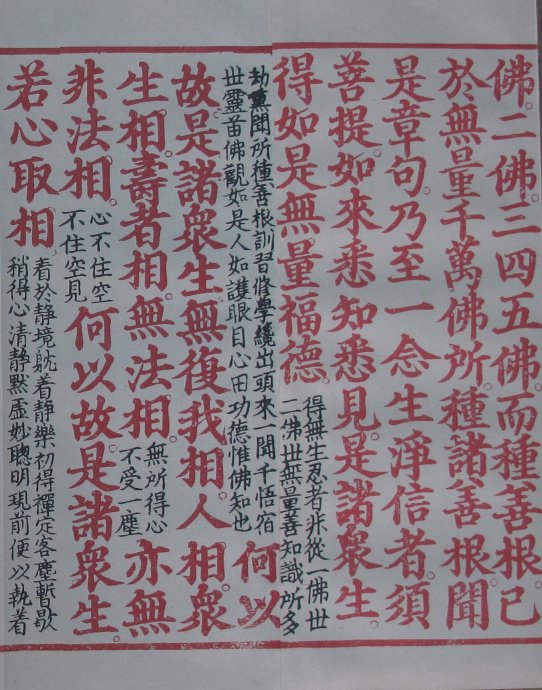 佛。二佛。三四五佛。而種善根。已
於無量千萬佛所。種諸善根。聞
是章句。乃至一念生淨信者。須
菩提。如來悉知悉見。是諸衆生。
得如是無量福德。
得無生忍者非從一佛世
二佛世無量善知識所多
劫熏聞所種善根訓習修學纔出頭來一聞千悟宿
世靈苗佛觀如是人如護眼目心田功德惟佛知也
何以
故。是諸衆生。無復我相。人相。衆
生相。壽者相。無法相。
無所得心
不受一塵
亦無
非法相。
心不住空
不住空見
何以故。是諸衆生。
若心取相
看於静境躭着静樂初得禪定客塵暫歇
稍得心清静默虛妙聰明現前便以執着